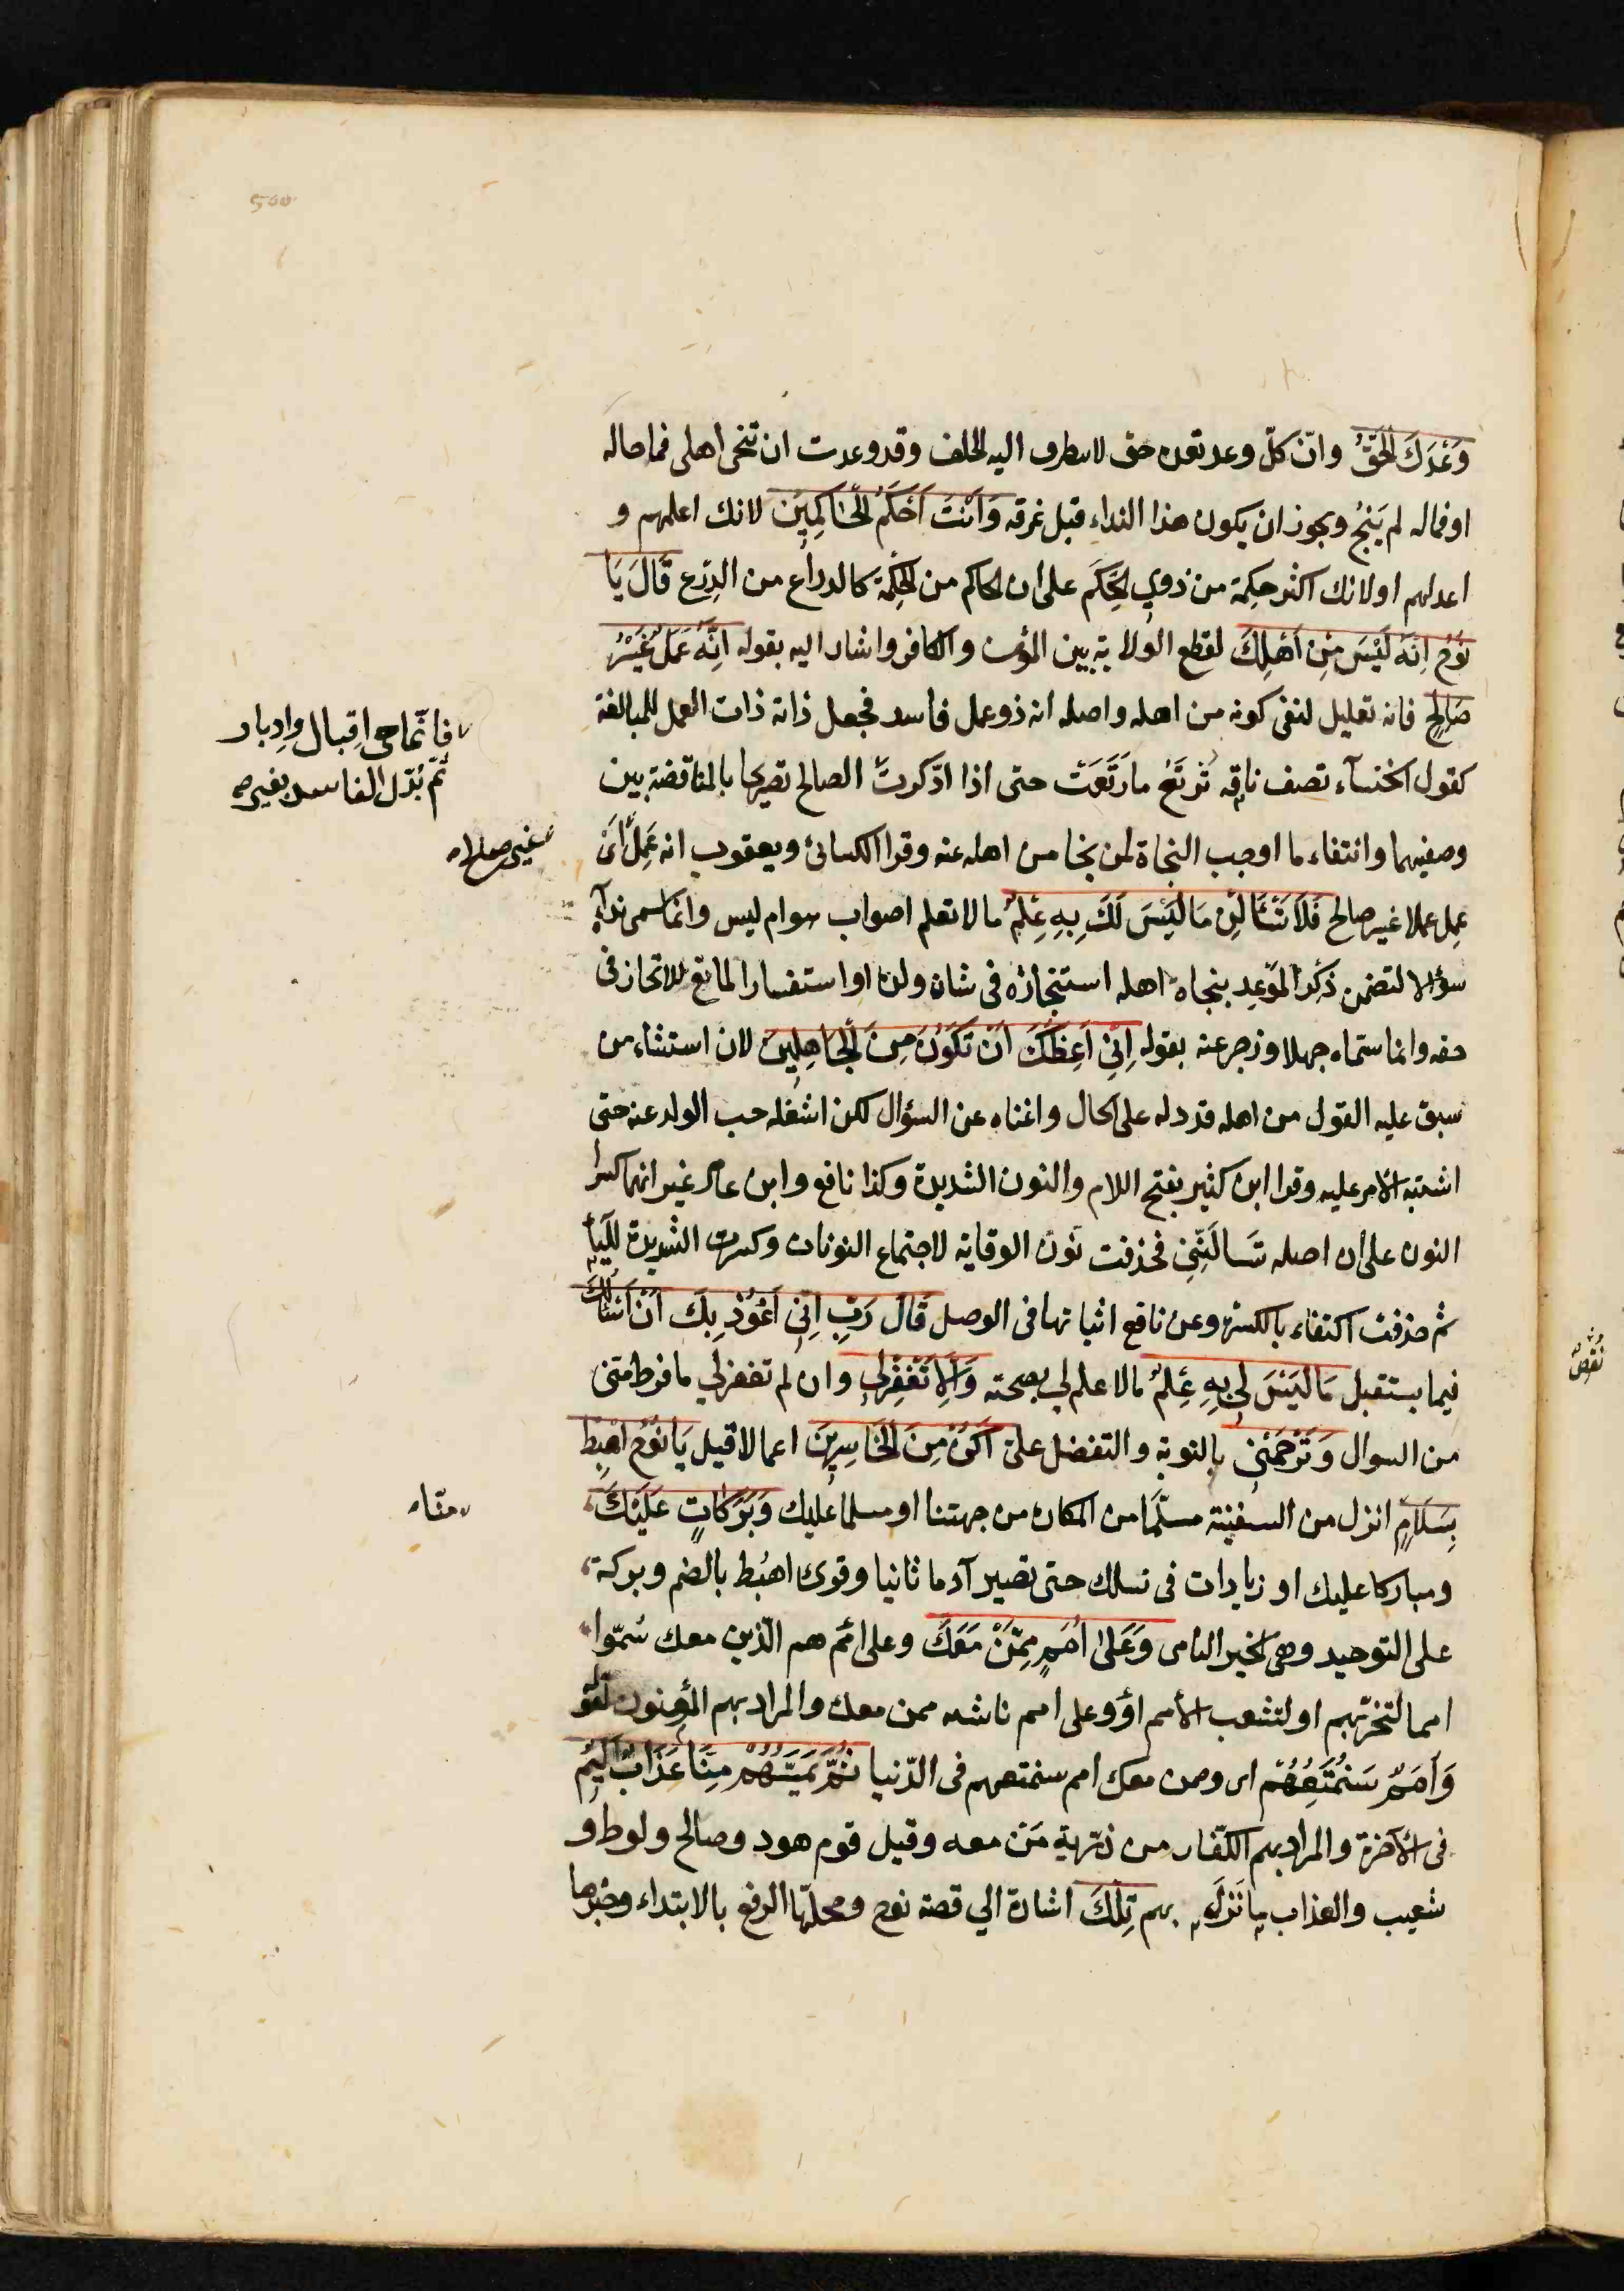 وَعْدَكَ الْحَقُّ وانّ كلّ وعد تعده حق لا يتطرف اليه الخلف وقد وعدت ان تنجى اهلى فما حاله
او فماله لم يَنْجُ ويجوز ان يكون هذا النداء قبل غرقه وَاَنْتَ اَحْكَمُ الْحَاكِمِينَ لانك اعلمهم و
اعدلهم او لانك اكثر حكمة من ذوي الحِكَم على ان الحاكم من الحِكْمة كالدراع من الدِرْع قَالَ يَا
نُوحُ اِنَّهُ لَيْسَ مِنْ اَهْلِكَ لقطع الولاية بين المؤمن والكافر واشار اليه بقوله اِنَّهُ عَمَلٌ غَيْرُ
صَالِحٍ فانه تعليل لنفى كونه من اهله واصله انه ذو عمل فاسد فجعل ذاته ذات العمل للمبالغة
كقول الخنسآء تصف ناقة تَرْتَعُ ما رَتَعَتْ حتى اذا ادّكرتْ الصالح تصريحا بالمناقضة بين
وصفيهما وانتفاء ما اوجب النجاة لمن نجا من اهله عنه وقرا الكسائى ويعقوب انه عَمِلَ اَىْ
عمل عملا غير صالح فَلَا تَسْئَالْنِ مَا لَيْسَ لَكَ بِهِ عِلْمٌ ما لا تعلم اصواب هو ام ليس وانما سمى ندآءه
سؤالا لتضمن ذِكْر المَوْعِد بنجاة اهله استنجازه فى شان ولده او استفسار المانع للانجاز فى
حقه وانما سمّاه جهلا وزجر عنه بقوله اِنّى اَعِظُكَ اَنْ تَكُونَ مِنَ الْجَاهِلِينَ لان استثناء من
سبق عليه القول من اهله قد دله على الحال واغناه عن السؤال لكن اشغله حب الولد عنه حتى
اشتبه الامر عليه وقرا ابن كثير بفتح اللام والنون الشديدة وكذا نافع وابن عامر غير انهما كسرا
النون على ان اصله تسالنّنى فحذفت نون الوقاية لاجتماع النونات وكسرت الشديدة للياء
ثم حذفت اكتفاء بالكسرة وعن نافع اثباتها فى الوصل قَالَ رَبِّ اِنّى اَعُوذُ بِكَ اَنْ اَسْئَالَكَ
فيما يستقبل مَا لَيْسَ لِى بِهِ عِلْمٌ ما لا علم لي بصحته وَاِلَّا تَغْفِرْ لِى وان لم تغفر لي ما فرط منى
من السوال وَتَرْحَمْنِى بالتوبة والتفضل علىّ اَكُنْ مِنَ الْخَاسِرِينَ اعمالا قيل يَا نُوحُ اهْبِطْ
بِسَلَامٍ انزل من السفينة مسلّما من المكاره من جهتنا او مسلما عليك وَبَرَكَاتٍ عَلَيْكَ
ومباركا عليك او زيادات فى نسلك حتى تصير آدما ثانيا وقرئ اهبُط بالضم وبركة
على التوحيد وهى الخير النامى وَعَلى اُمَمٍ مِمَّنْ مَعَكَ وعلى امم هم الّذين معك سُمّوا
امما لتحزّبهم او لتشعب الامم او وعلى امم ناشئه ممن معك والمراد بهم المؤمنون لقوله
وَاُمَمٌ سَنُمَتِّعُهُمْ اى وممن معك امم سنمتعهم فى الدّنيا ثُمَّ يَمَسُّهُمْ مِنَّا عَذَابٌ اَلِيمٌ
فى الاخرة والمراد بهم الكفّار من ذرّية مَن معه وقيل قوم هود وصالح ولوط و
شعيب والعذاب ما نَزَلَ بهم تِلْكَ اشارة الي قصة نوح ومحلّها الرفع بالابتداء وخبرها
فانّما هى اقبال وادبار
ثمّ بُدّل الفاسد بغير
غير صلاه
منا
نقص